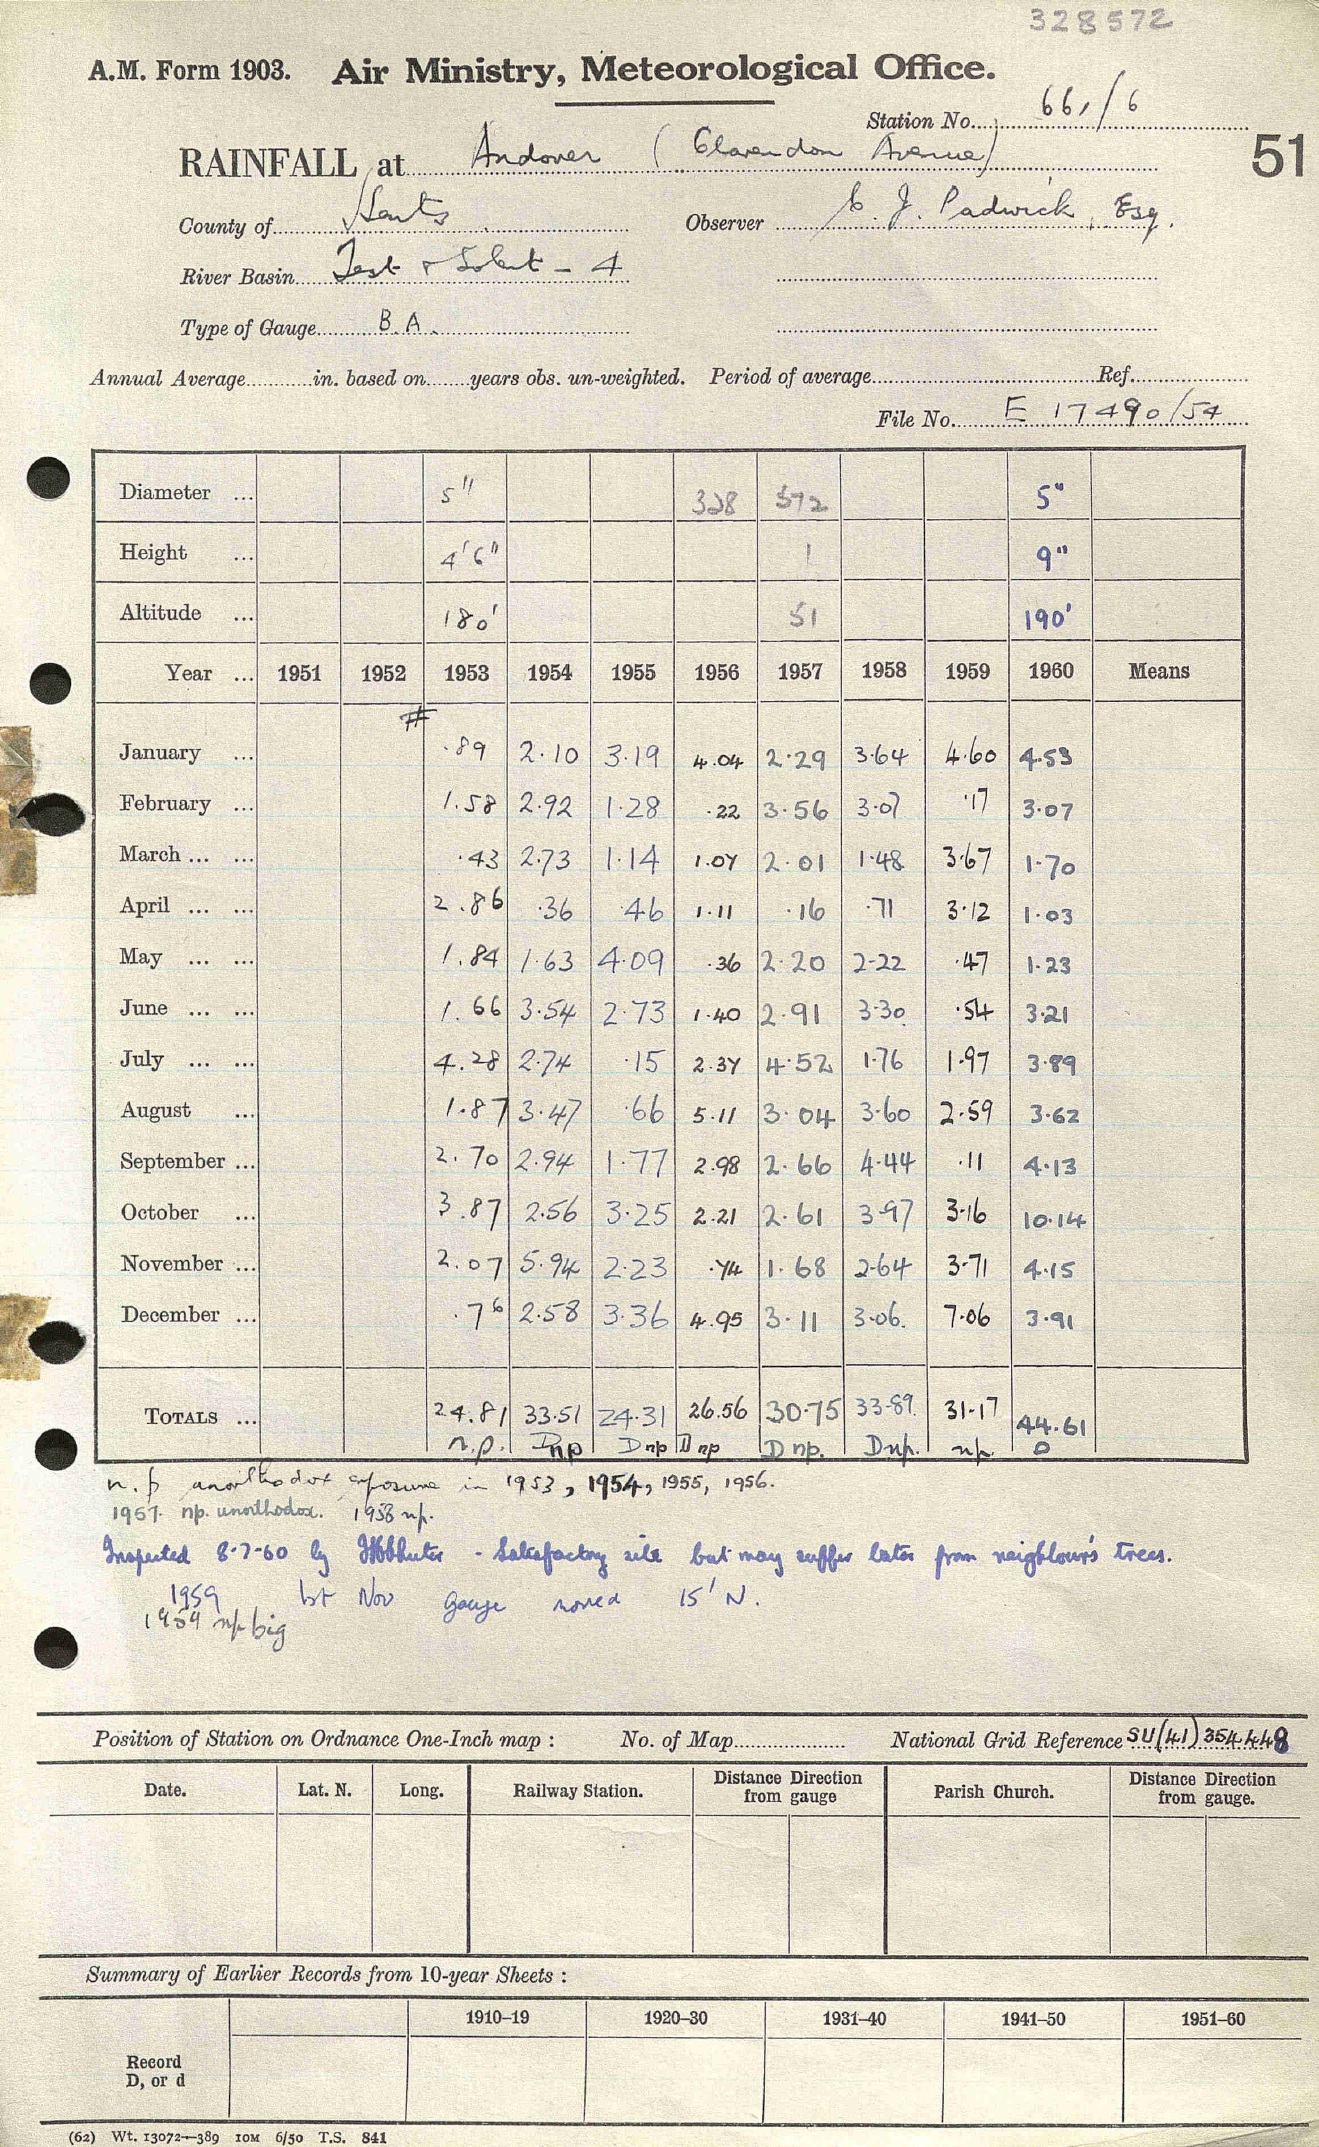 328572
A.M. Form 1903. Air Ministry, Meteorological Office.
Station No. 661/6
RAINFALL at Andover (Clarendon Avenue) 51
County of Hants Observer C. J. Padwick, Esq.
River Basin Test & Solent - 4
Type of Gauge B.A.
Annual Average in. based on years obs. un-weighted. Period of average Ref.
File No. E 17490/54
Diameter ... 5" 328 572 5"
Height ... 4'6" 1 9"
Altitude ... 180' 51 190'
Year ... 1951 1952 1953 1954 1955 1956 1957 1958 1959 1960 Means
#
January ... ·89 2·10 3·19 4.04 2·29 3·64 4·60 4·53
February ... 1.58 2·92 1·28 ·22 3·56 3·07 ·17 3·07
March ... ... ·43 2·73 1·14 1·07 2·01 1·48 3·67 1·70
April ... ... 2.86 ·36 ·46 1·11 ·16 ·71 3·12 1·03
May ... ... 1.84 1·63 4·09 ·36 2·20 2·22 ·47 1·23
June ... ... 1.66 3·54 2·73 1·40 2·91 3·30 ·54 3·21
July ... ... 4.28 2·74 ·15 2·37 4·52 1·76 1·97 3·89
August ... 1·87 3·47 ·66 5·11 3·04 3·60 2·59 3·62
September ... 2.70 2·94 1·77 2·98 2·66 4·44 ·11 4·13
October ... 3.87 2·56 3·25 2·21 2·61 3·97 3·16 10·14
November ... 2.07 5·94 2·23 ·74 1·68 2·64 3·71 4·15
December ... ·76 2·58 3·36 4.95 3·11 3·06. 7·06 3·91
TOTALS ... 24.81 33·51 24·31 26.56 30·75 33·89 31·17 44.61
n.p. Dnp D np D np D np. Dnp. np. D
n.p unorthodox exposure in 1953, 1954, 1955, 1956.
1957. np. unorthodox. 1958 np.
Inspected 8·7·60 by - Satisfactory site but may suffer later from neighbour's trees.
1959 1st Nov gauge moved 15' N.
1959 np big
Position of Station on Ordnance One-Inch map : No. of Map National Grid Reference SU(41)354448
Date. Lat. N. Long. Railway Station. Distance Direction from gauge Parish Church. Distance Direction from gauge.
Summary of Earlier Records from 10-year Sheets :
1910–19 1920–30 1931–40 1941–50 1951–60
Record
D, or d
(62) Wt. 13072—389 10M 6/50 T.S. 841